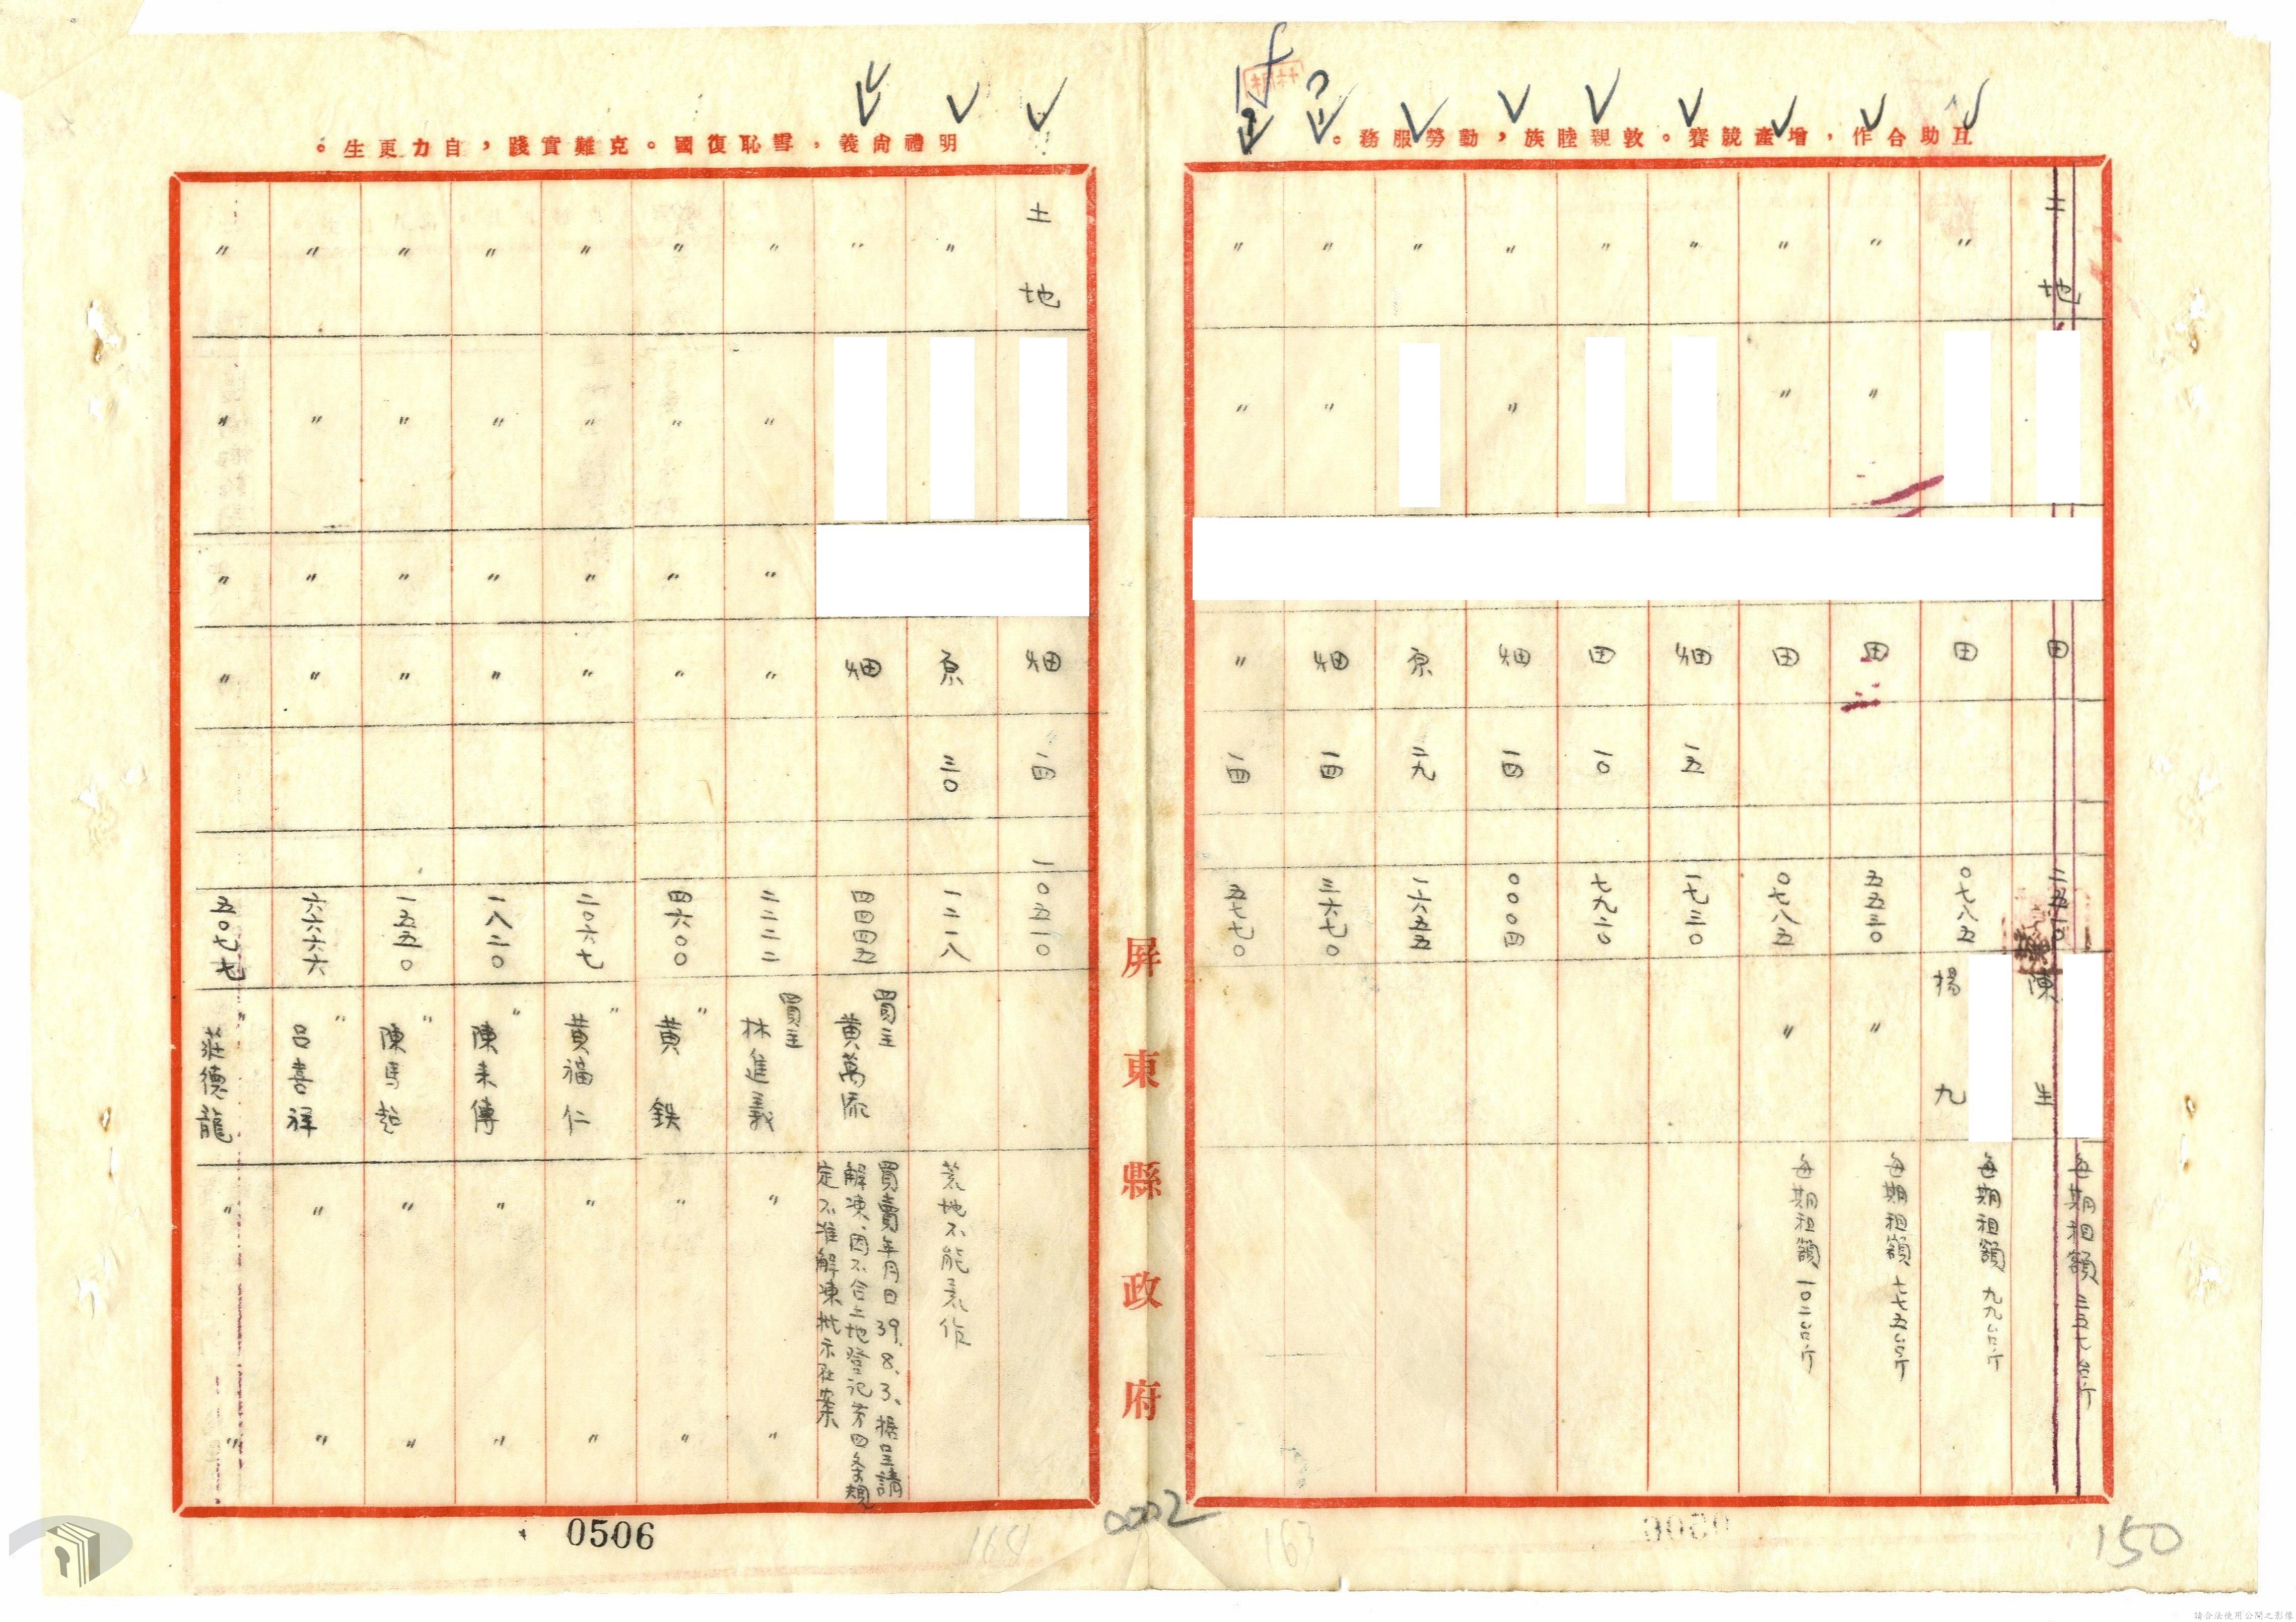 互助合作，增產競賽。敦親睦族，勤勞服務。
土地 田 二五一〇 陳 生 每期租額 三五七台斤
〃 田 〇七八五 楊 九 每期租額 九九台斤
〃 〃 田 五五三〇 〃 每期租額 七七五台斤
〃 〃 田 〇七八五 〃 每期租額 一〇二台斤
〃 畑 一五 一七三〇
〃 田 一〇 七九二〇
〃 〃 畑 一四 〇〇〇四
〃 原 二九 一六五五
〃 〃 畑 一四 三六七〇
〃 〃 〃 一四 五七七〇
屏東縣政府
明禮尚義，雪恥復國。克難實踐，自力更生。
土地 畑 一四 一〇五一〇
〃 原 三〇 一二一八 荒地不能耕作
〃 畑 四四四五 買主 黃萬添 買賣年月日39.8.3、據呈請
解凍、因不合土地登記第四条規
定不准解凍批示在案
〃 〃 〃 〃 二二二二 買主 林進義 〃 〃
〃 〃 〃 〃 四六〇〇 〃 黃鉄 〃 〃
〃 〃 〃 〃 二〇六七 〃 黃福仁 〃 〃
〃 〃 〃 〃 一八二〇 〃 陳來傳 〃 〃
〃 〃 〃 〃 一五五〇 〃 陳馬起 〃 〃
〃 〃 〃 〃 六六六六 〃 呂喜祥 〃 〃
〃 〃 〃 〃 五〇七七 〃 莊德龍 〃 〃
0506
164
0002
163
150
請合法使用公開之影像